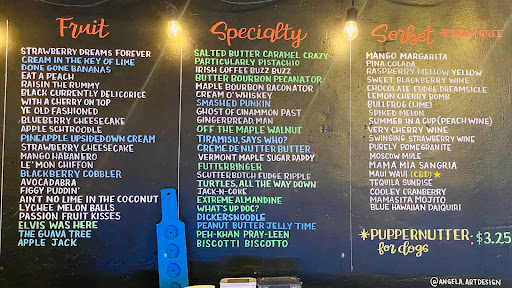 Fruit
STRAWBERRY DREAMS FOREVER
CREAM IN THE KEY OF LIME
DONE GONE BANANAS
EAT A PEACH
RAISIN THE RUMMY
BLACK CURRENTLY DELICORICE
WITH A CHERRY ON TOP
YE OLD FASHIONED
BLUEBERRY CHEESECAKE
APPLE SCHTROODLE
PINEAPPLE UPSIDEDOWN CREAM
STRAWBERRY CHEESECAKE
MANGO HABANERO
LE' MON CHIFFON
BLACKBERRY COBBLER
AVOCADABRA
FIGGY PUDDIN'
AIN'T NO LIME IN THE COCONUT
LYCHEE MELON BALLS
PASSION FRUIT KISSES
ELVIS WAS HERE
THE GUAVA TREE
APPLE JACK
Specialty
SALTED BUTTER CARAMEL CRAZY
PARTICULARLY PISTACHIO
IRISH COFFEE BUZZ BUZZ
BUTTER BOURBON PECANATOR
MAPLE BOURBON BACONATOR
CREAM O'WHISKEY
SMASHED PUNKIN
GHOST OF CINAMMON PAST
GINGERRREAD MAN
OFF THE MAPLE WALNUT
TIRAMISU, SAYS WHO?
CREME DE NUTTER BUTTER
VERMONT MAPLE SUGAR DADDY
FUTTERBINGER
SCUTTERBOTCH FUDGE RIPPLE
TURTLES, ALL THE WAY DOWN
JACK-N-COKE
EXTREME ALMANDINE
WHAT'S UP DOG?
DICKERSNOODLE
PEANUT BUTTER JELLY TIME
PEH-KHAN PRAY-LEEN
BISCOTTI BISCOTTO
Sorbet *DAIRY FREE
MANGO MARGARITA
PINA COLADA
RASPBERRY MELLOW YELLOW
SWEET BLACKBERRY WINE
CHOCOLATE FUDGE DREAMSICLE
LEMON CHERRY BOMB
BULLFROG (LIME)
SPIKED MELON
SUMMER IN A CUP (PEACH WINE)
VERY CHERRY WINE
SWINGING STRAWBERRY WINE
PURELY POMEGRANITE
MOSCOW MULE
MAMA MIA SANGRIA
MAUI WAUI (CBD) ★
TEQUILA SUNRISE
COOLEY CRANBERRY
MAMASITA MOJITO
BLUE HAWAIIAN DAIQUIRI
*PUPPERNUTTER: $3.25
for dogs
@ANGELA.ARTDESIGN